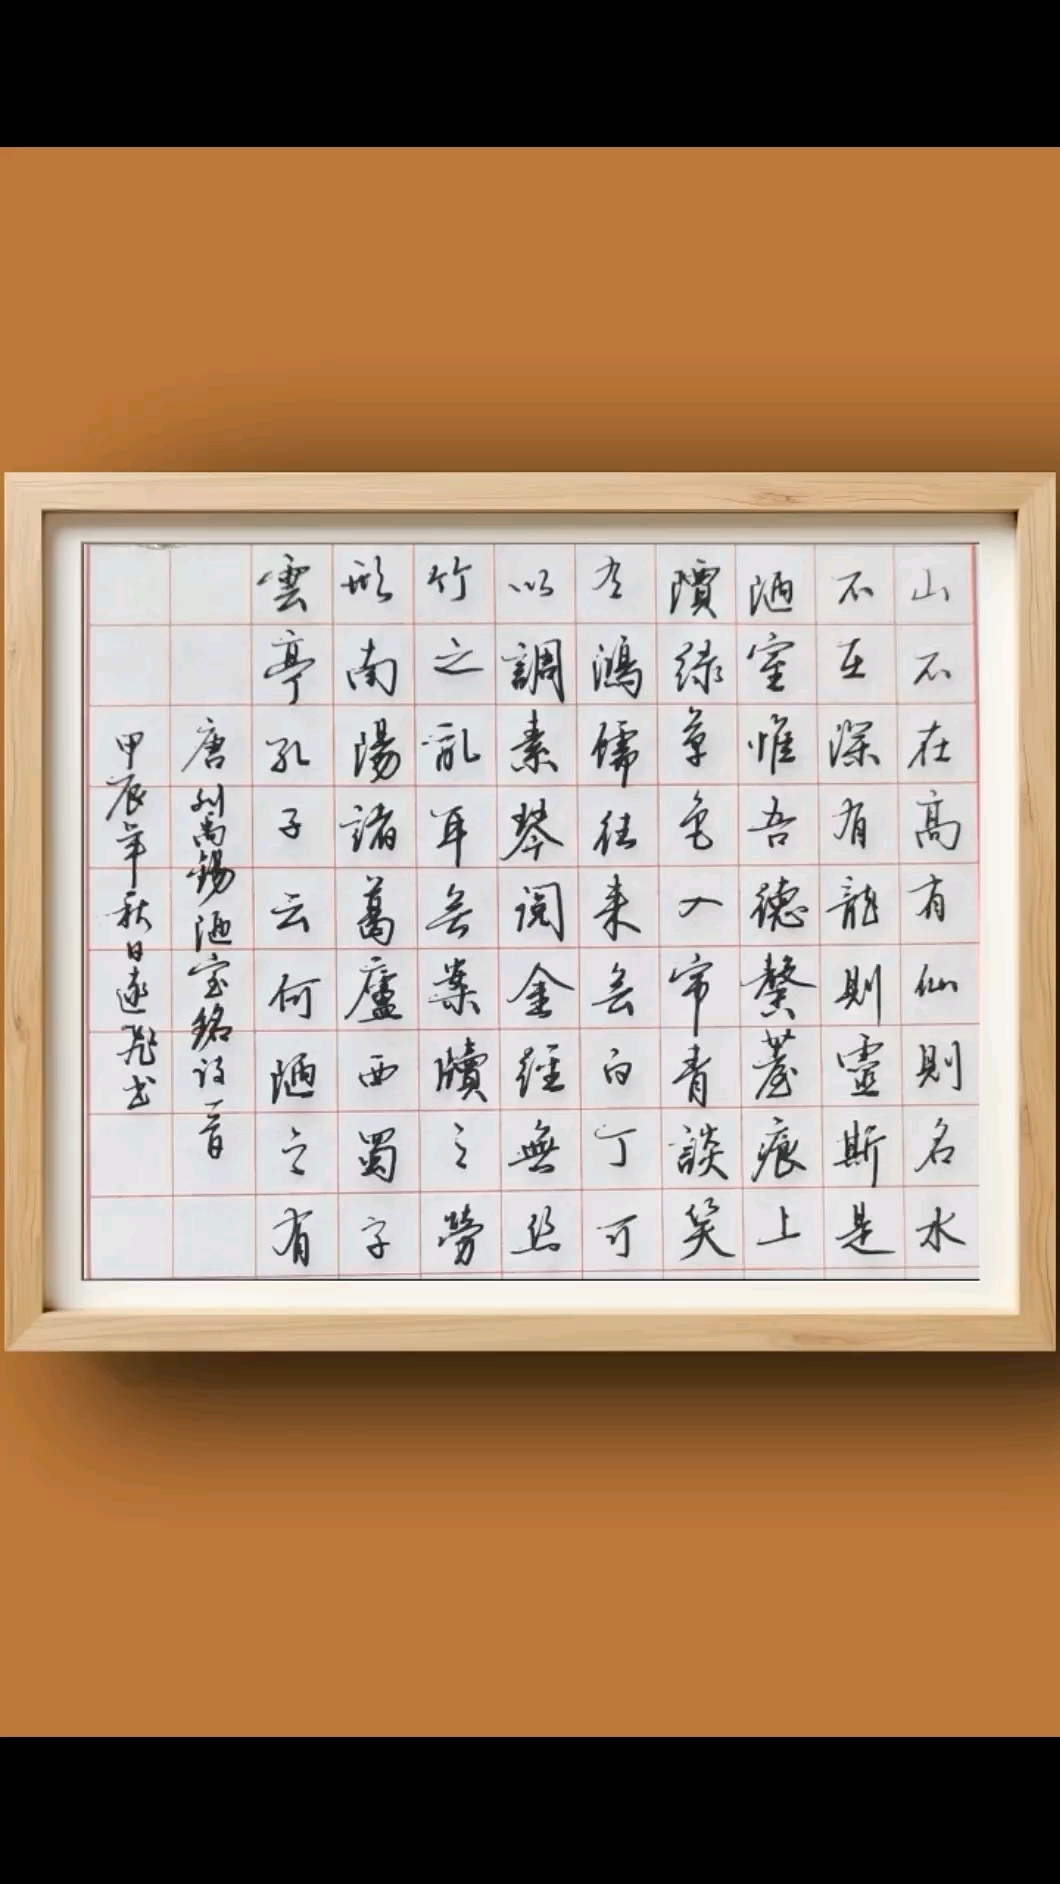 山不在高有仙則名水
不在深有龍則靈斯是
陋室惟吾德馨薹痕上
隫綠草色入帘青談笑
有鴻儒往来無白丁可
以調素琴閱金經無絲
竹之亂耳無案牘之勞
形南陽諸葛廬西蜀子
雲亭孔子云何陋之有
唐刘禹錫陋室銘詩一首
甲辰年秋日遠书